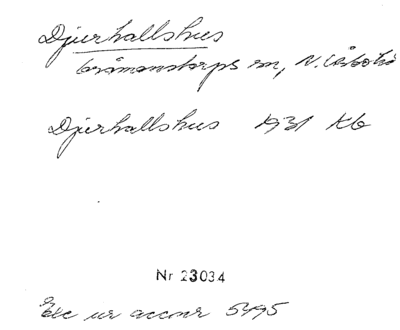 Djurhallshus
Gråmanstorps sn, N. Åsbo hd
Djurhallshus 1931 Kb
Nr 23034
Exc ur accnr 5495